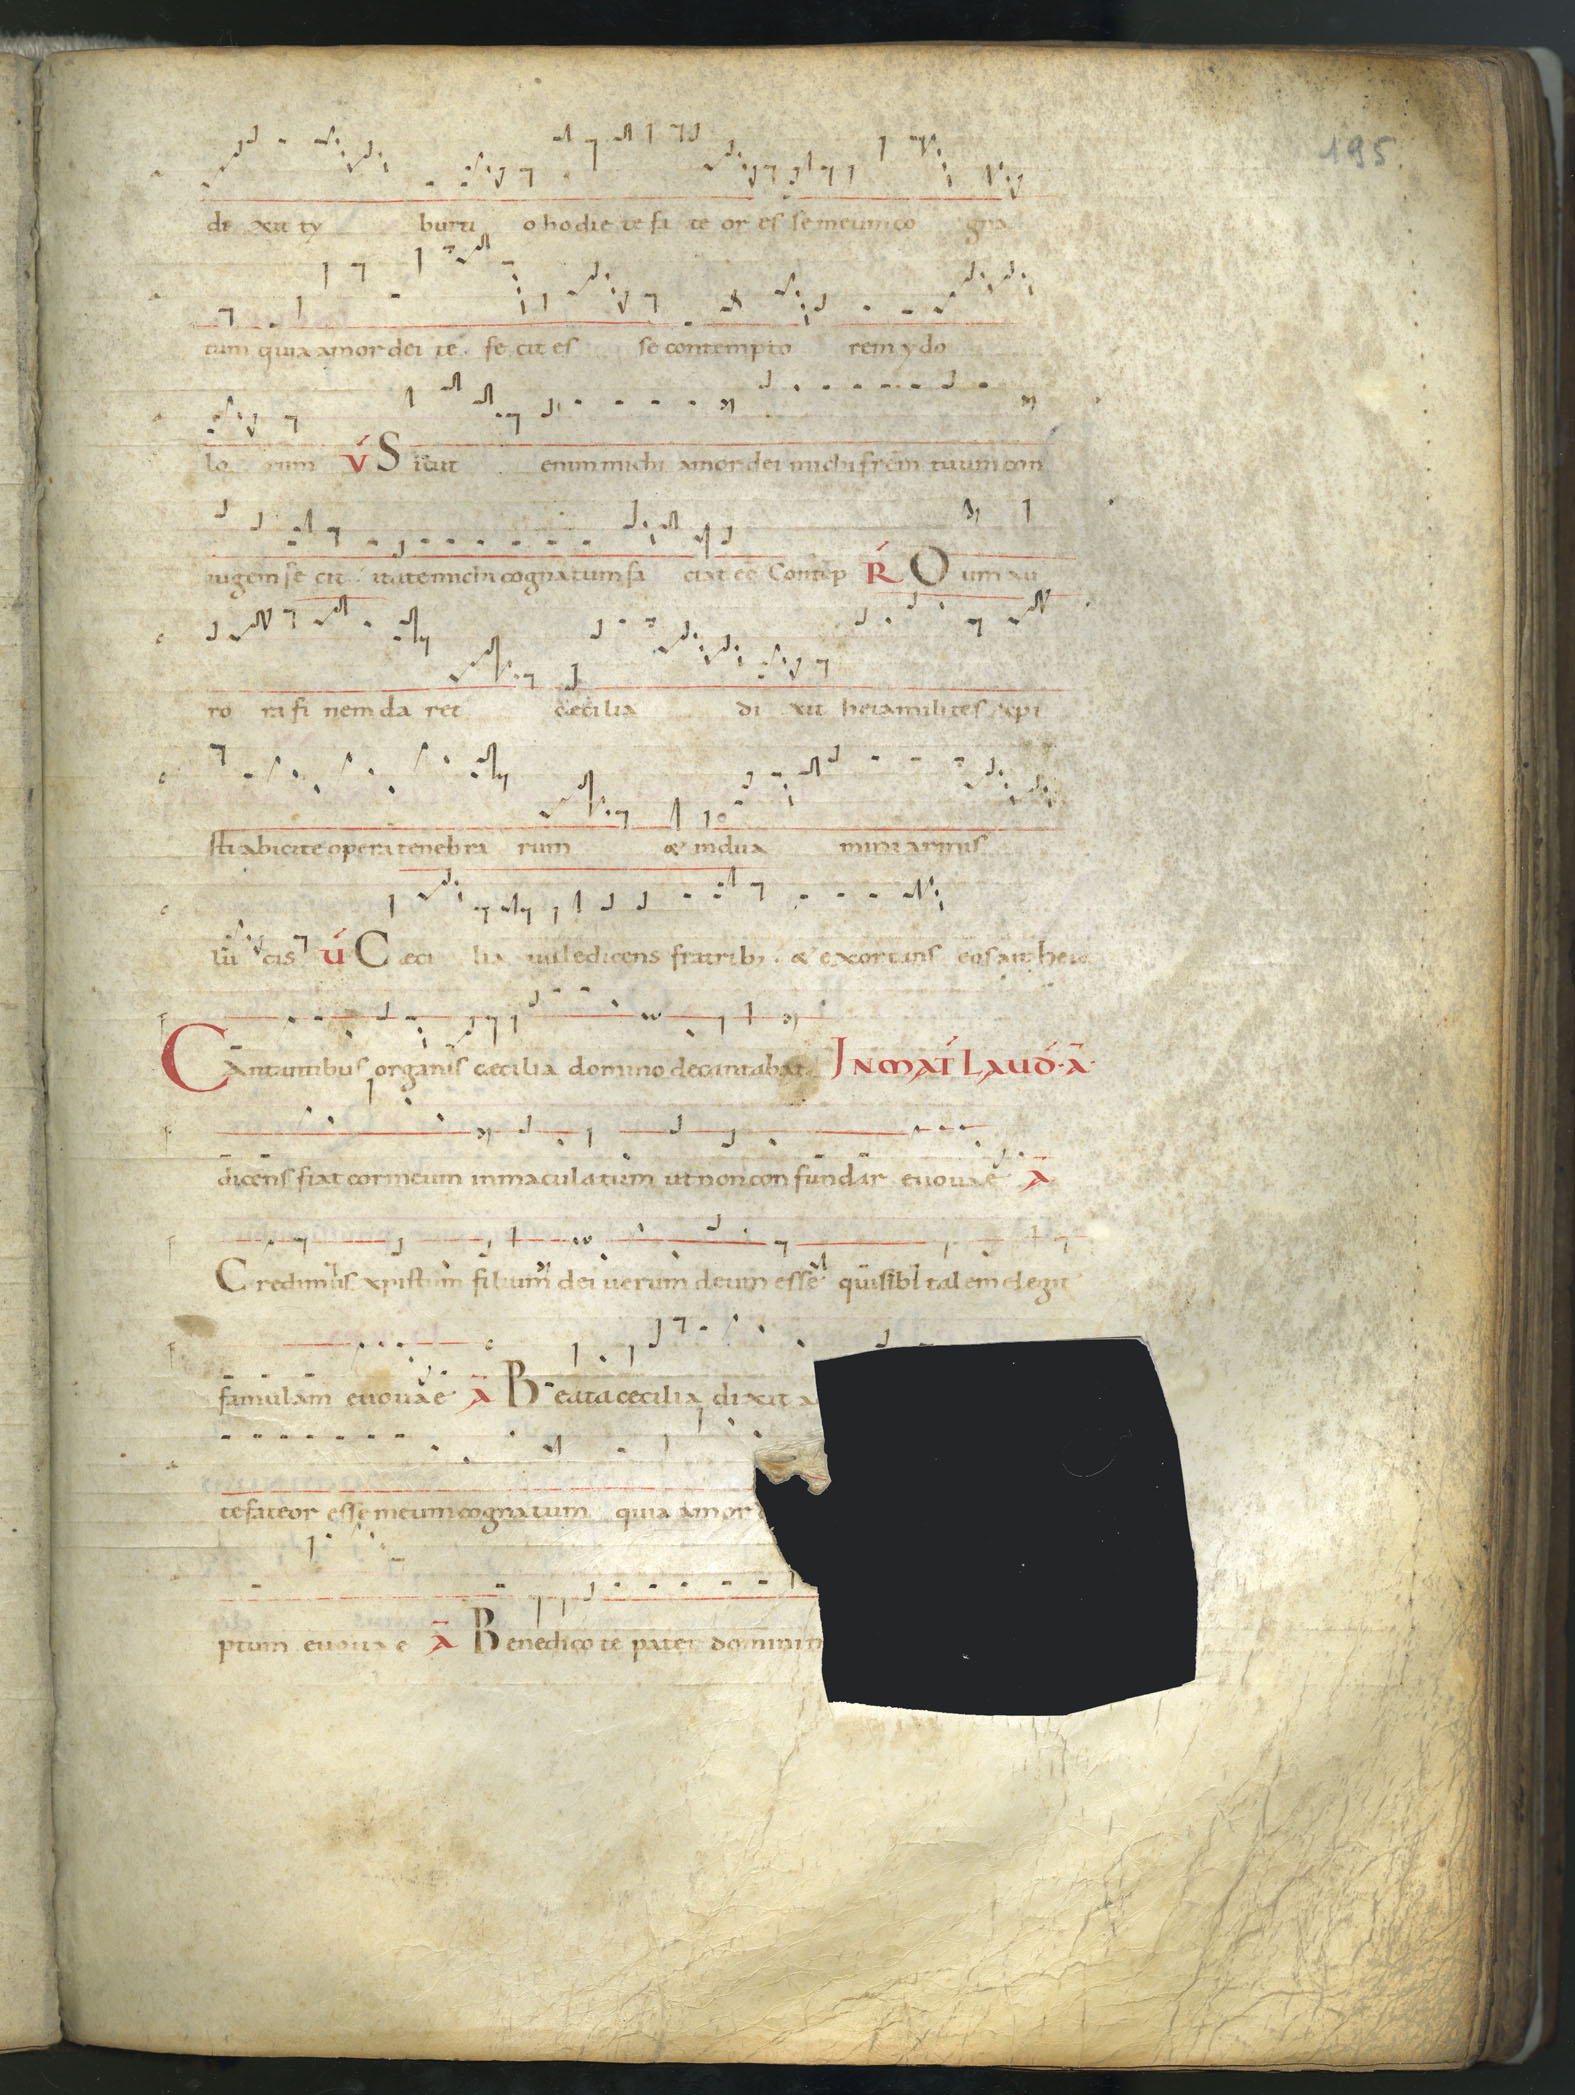 195
di xit ty burti o hodie te fa te or es se meum co gna
tum quia amor dei te fe cit es se contempto rem ydo
lo rum V S icut enim michi amor dei michi frem tuum con
iugem fe cit ita te michi cognatum fa ciat eē Contēp R O um au
ro ra fi nem da ret cæcilia di xit heia milites xpi
sti abicite opera tenebra rum & indua mini armis
lu cis V C æci lia uale dicens fratrib; & exortans eos ait heia
Cantantibus organis cæcilia domino decantabat IN MAT LAUD A
dicens fiat cor meum inmaculatum ut non confundar euouae A
Credimus xpistum filium dei uerum deum esse qui sibi talem elegit
famulam euouae A Beata cecilia dixit
te fateor esse meum cognatum quia amor
ptum euouae A Benedico te pater domini